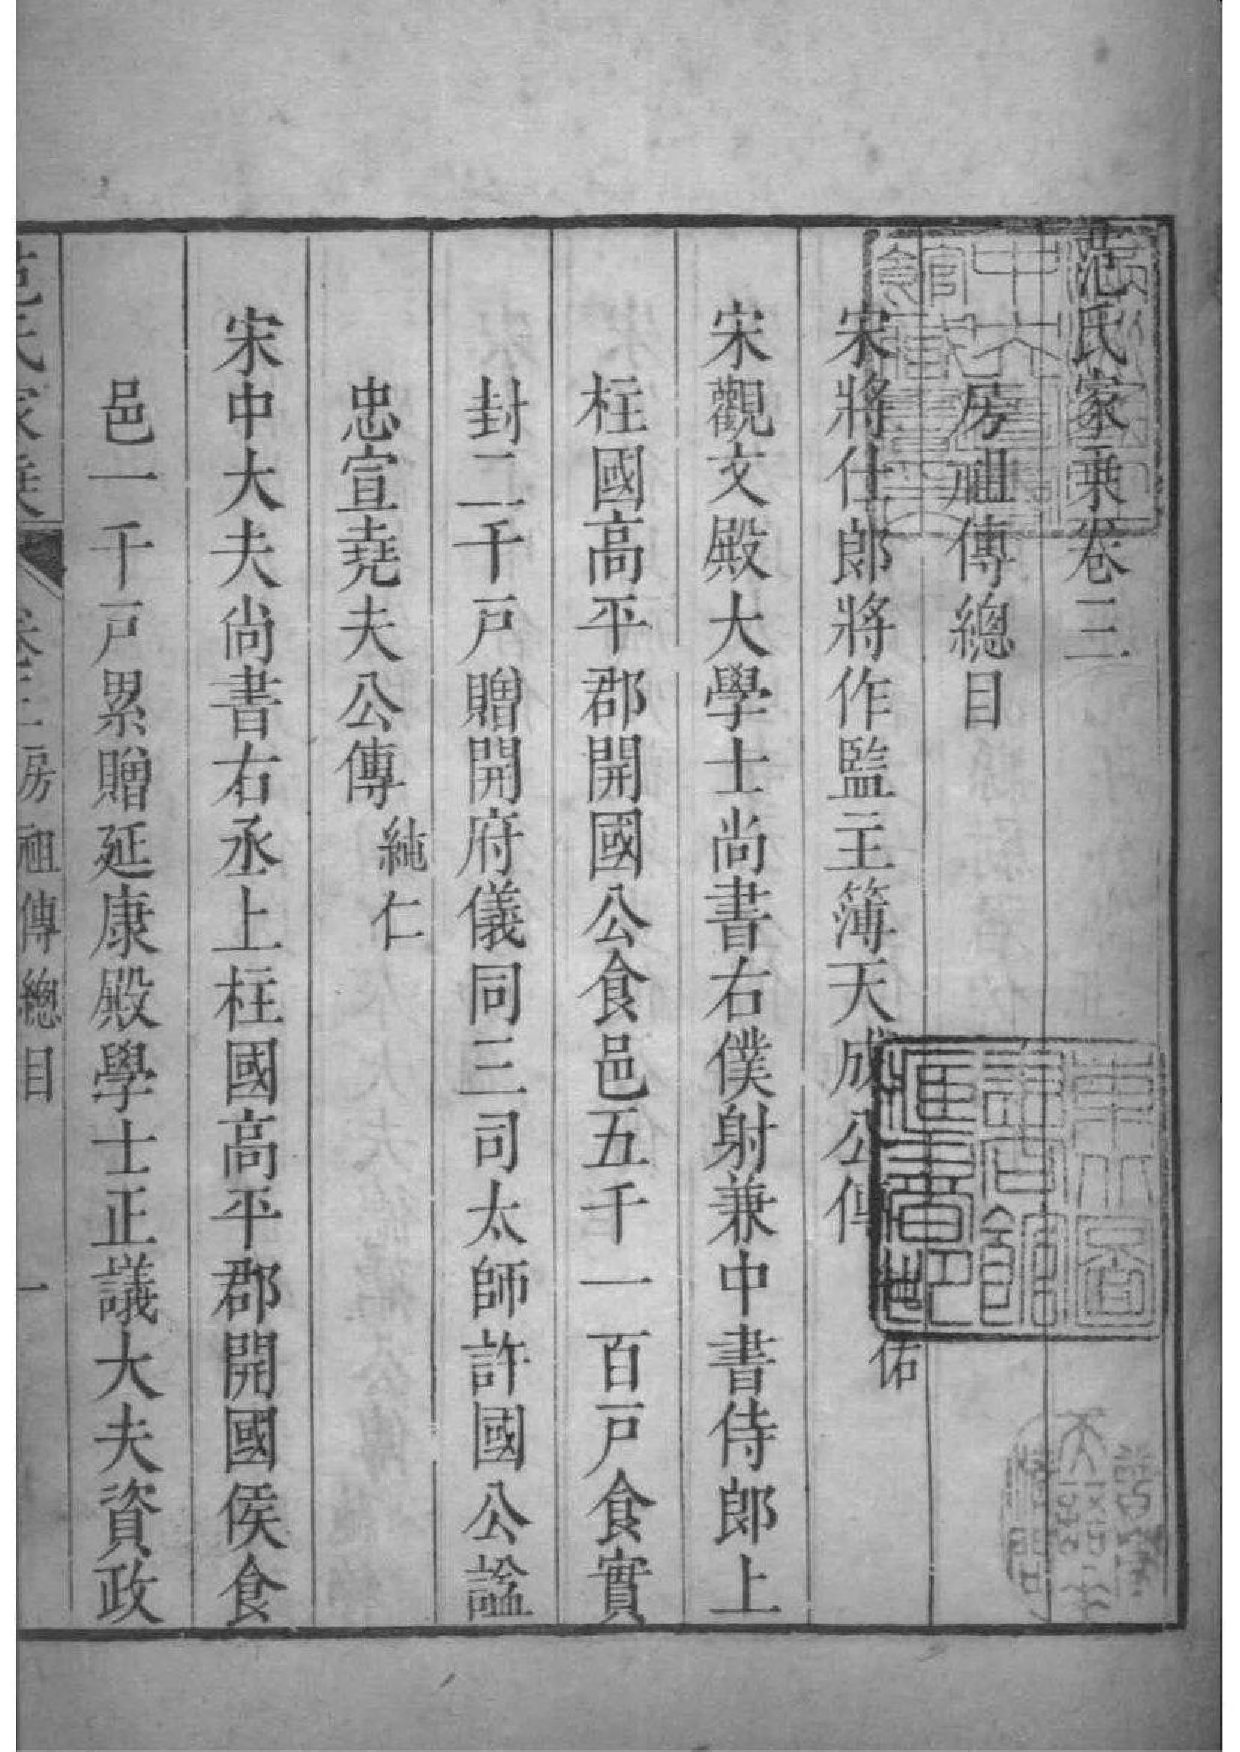 范氏家乘卷三
房祖傳總目
宋將仕郎將作監主簿天成公傳 純佑
宋觀文殿大學士尚書右僕射兼中書侍郎上
柱國高平郡開國公食邑五千一百戶食實
封二千戶贈開府儀同三司太師許國公諡
忠宣堯夫公傳 純仁
宋中大夫尚書右丞上柱國高平郡開國侯食
邑一千戶累贈延康殿學士正議大夫資政
范氏家乘 卷三 房祖傳總目 一